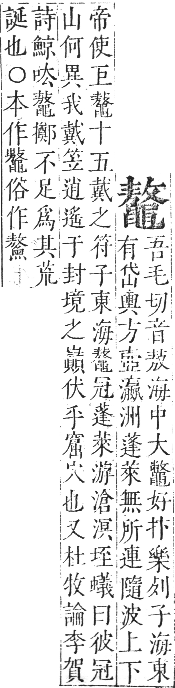 鼇
吾毛切音敖海中大鼈好抃樂列子海東
有岱輿方壺瀛洲蓬萊無所連隨波上下
帝使巨鼇十五戴之符子東海鼇冠蓬萊游滄溟垤蟻曰彼冠
山何異我戴笠逍遙于封壤之巔伏乎窟穴也又杜牧論李賀
詩鯨呿鼇擲不足爲其荒
誕也○本作鼇俗作鰲